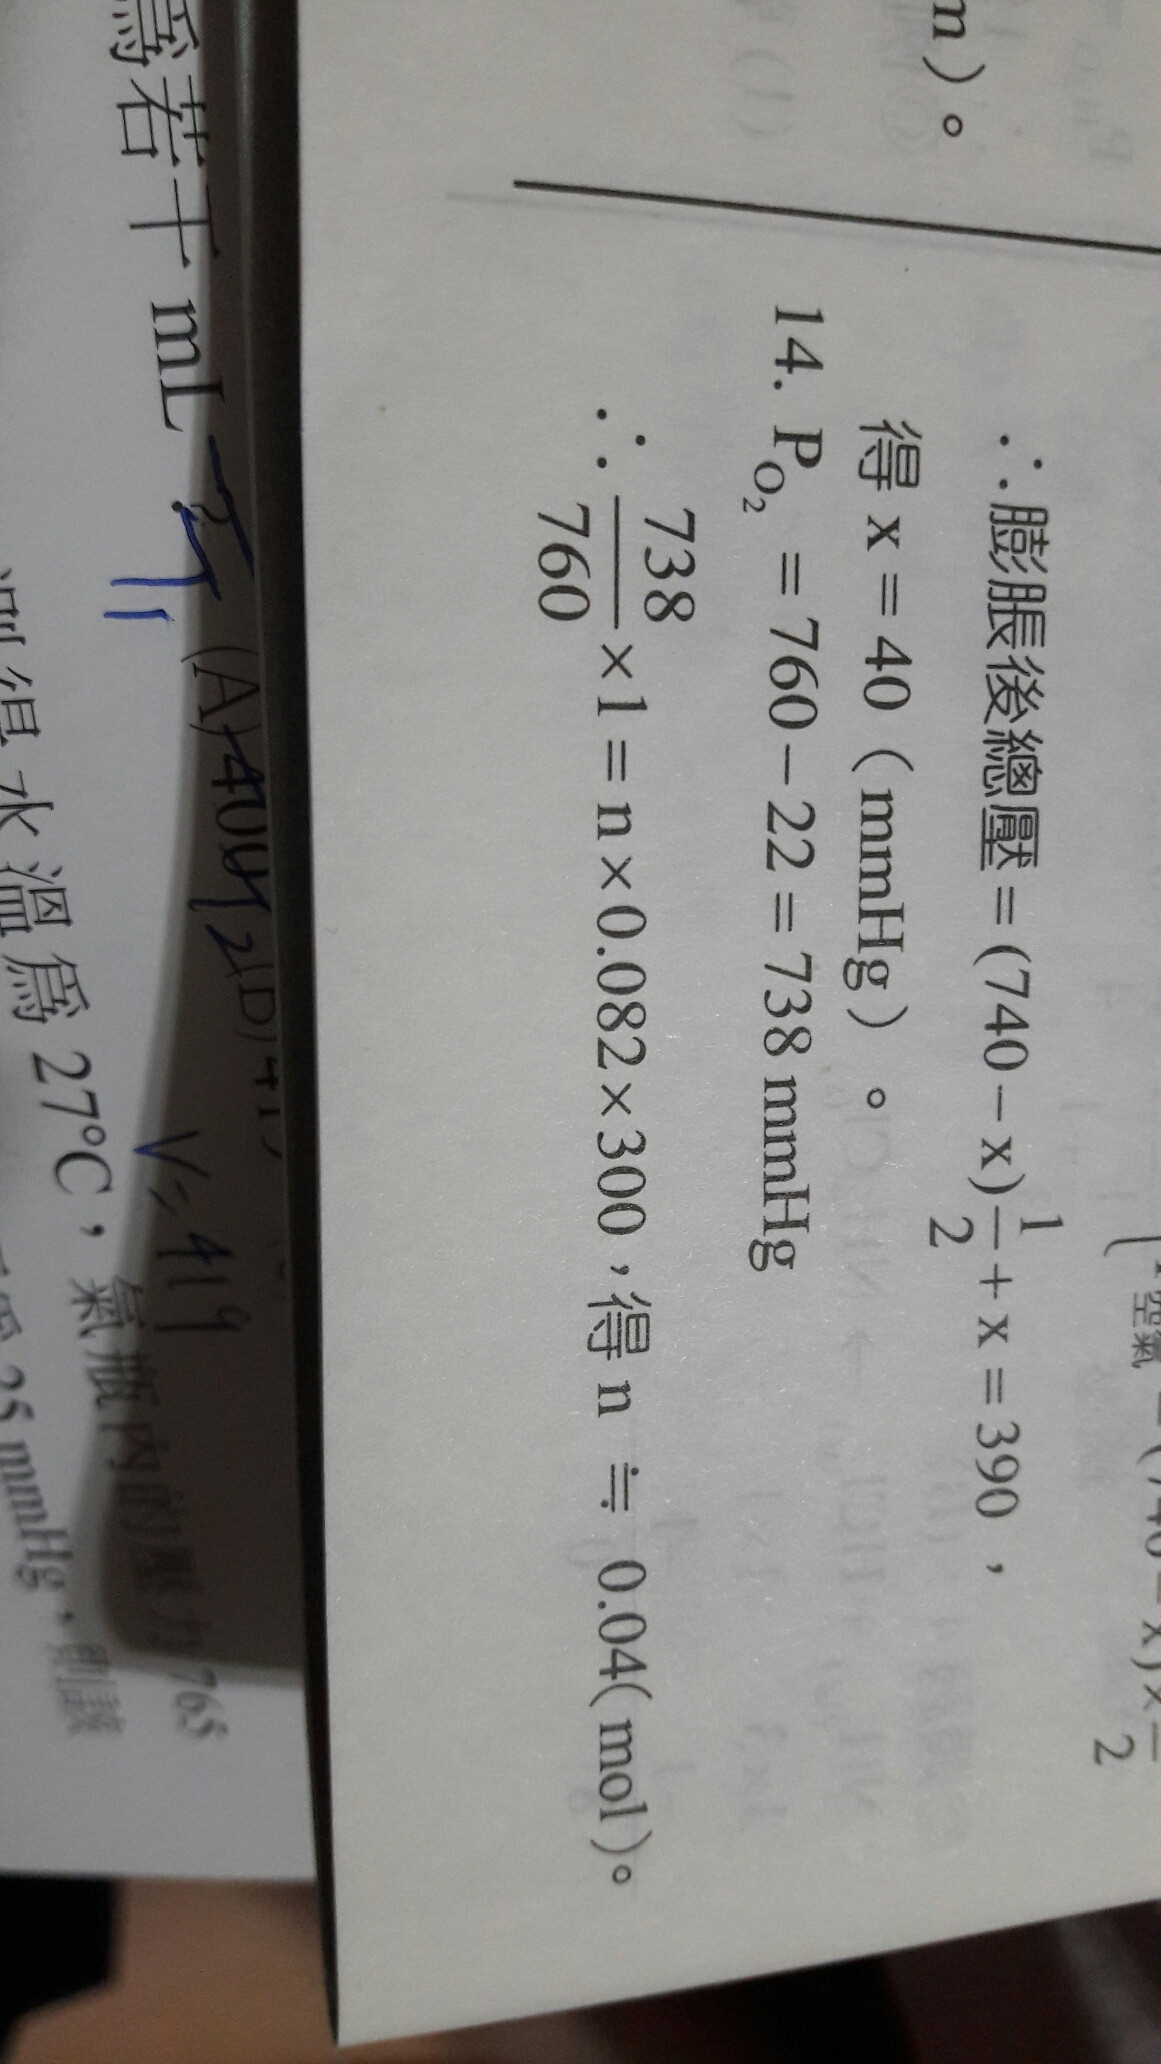 m)。
∴膨脹後總壓=(740-x)1/2+x=390,
得 x=40(mmHg)。
14. P_O₂ =760-22=738 mmHg
∴738/760×1=n×0.082×300,得n ≒ 0.04(mol)。
爲若干 mL
(A)
V=419
測得水溫爲 27°C,氣瓶內的壓力 765
25 mmHg,則該